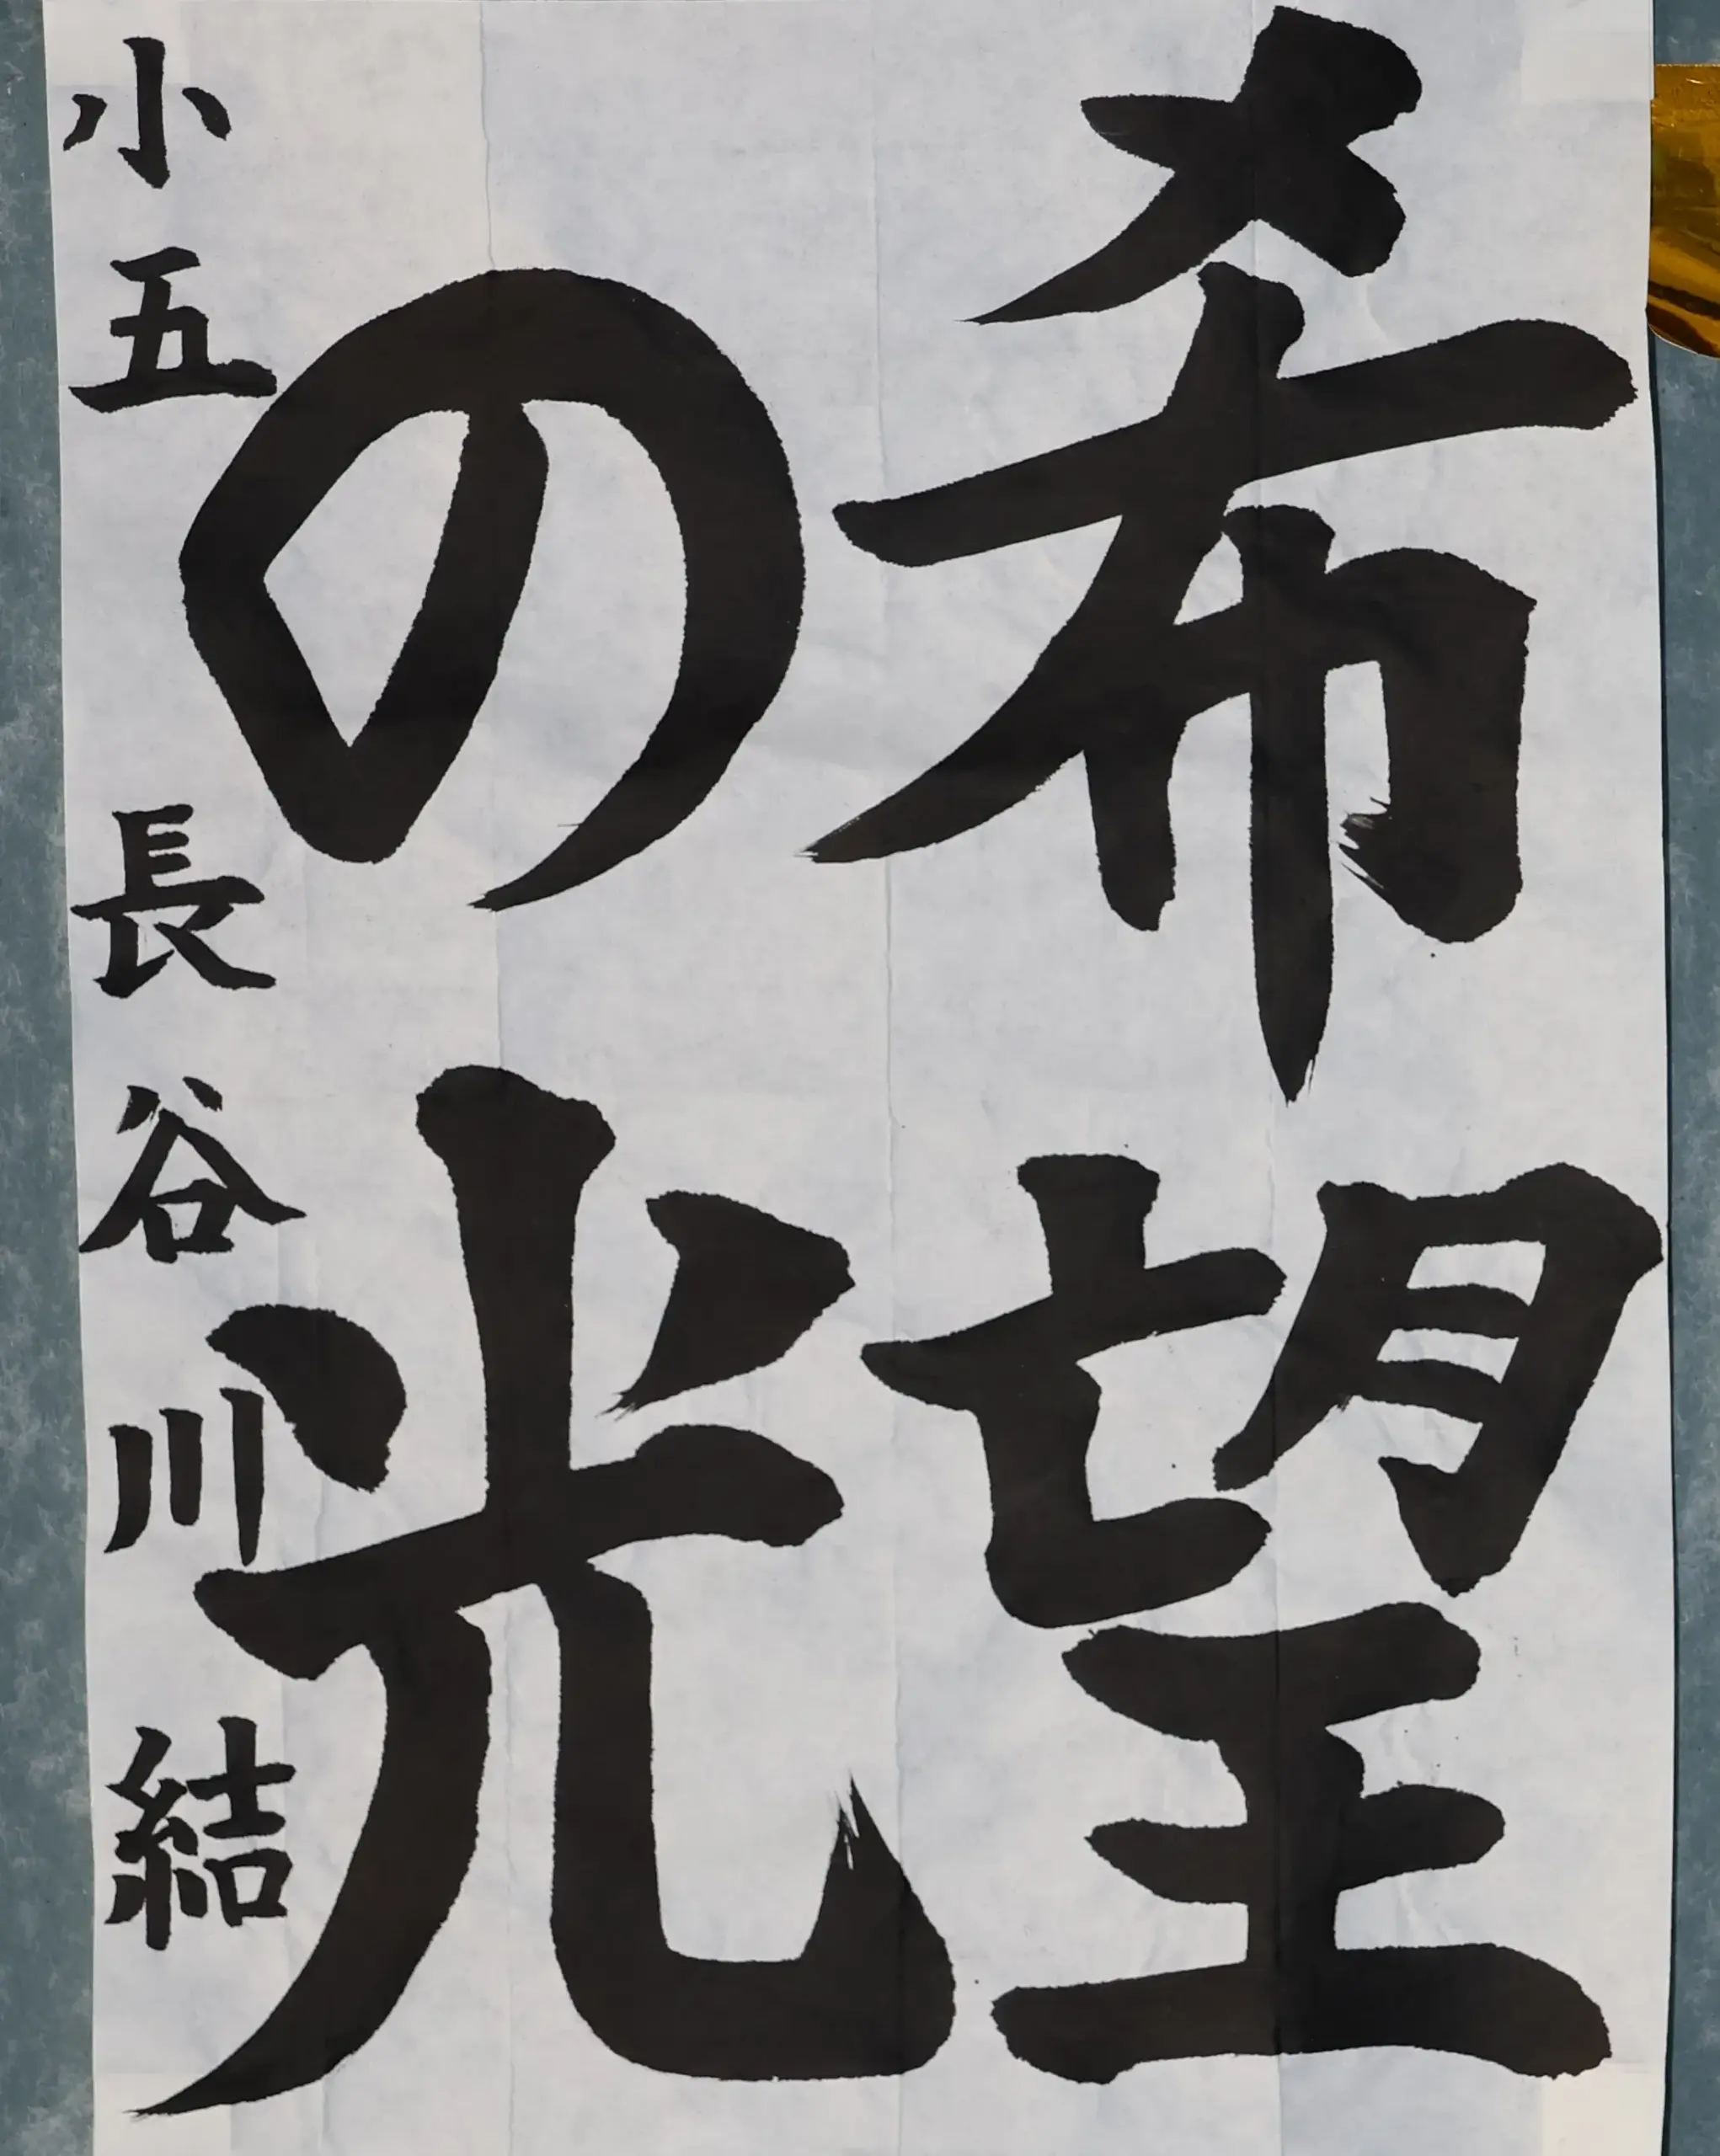 希望
の光
小五 長谷川 結